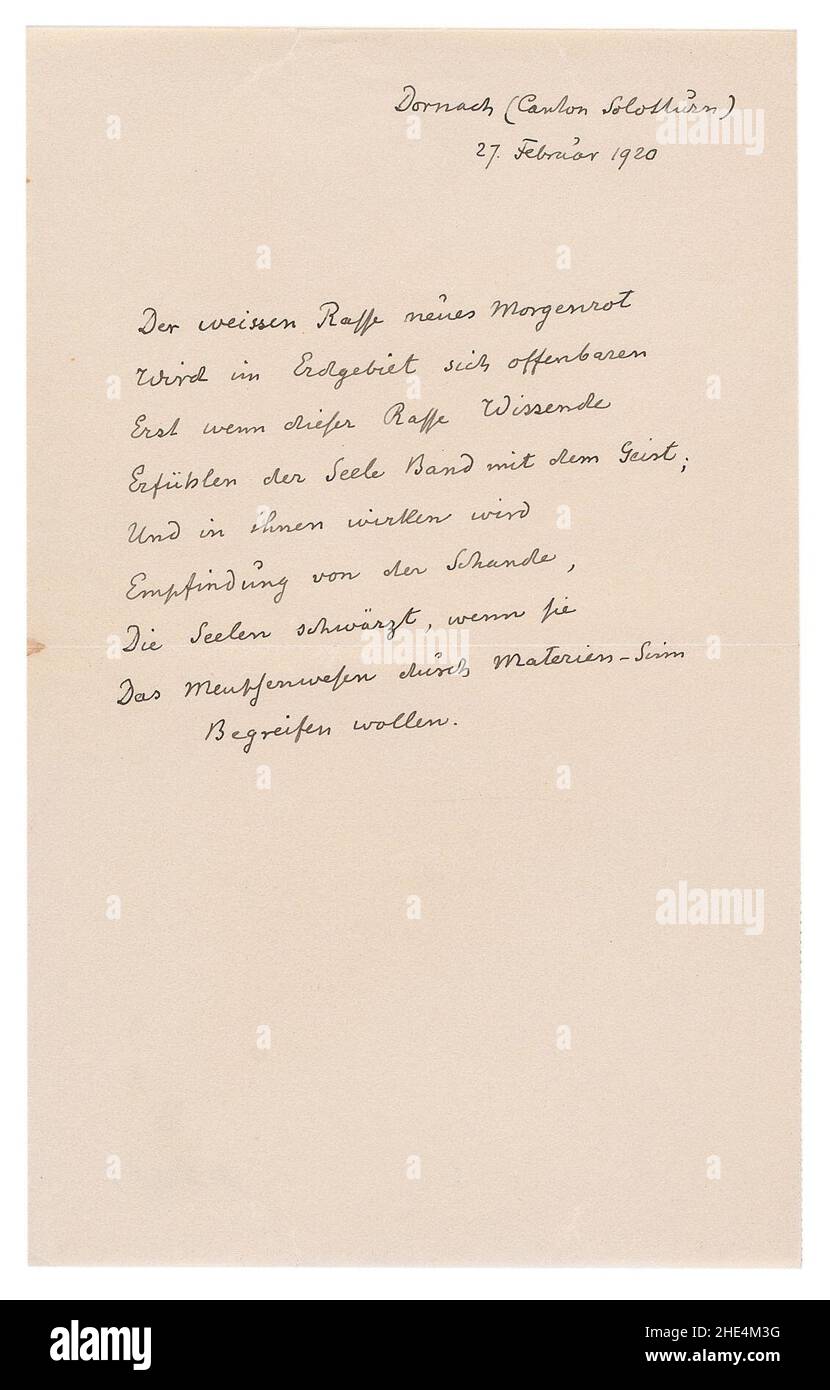 Dornach (Canton Solothurn)
27. Februar 1920
Der weissen Rasse neues Morgenrot
Wird im Erdgebiet sich offenbaren
Erst wenn dieser Rasse Wissende
Erfühlen der Seele Band mit dem Geist;
Und in ihnen wirken wird
Empfindung von der Schande,
Die Seelen schwärzt, wenn sie
Das Menschenwesen durch Materien-Sinn
Begreifen wollen.
alamy
alamy
alamy
alamy
Image ID: 2HE4M3G
www.alamy.com